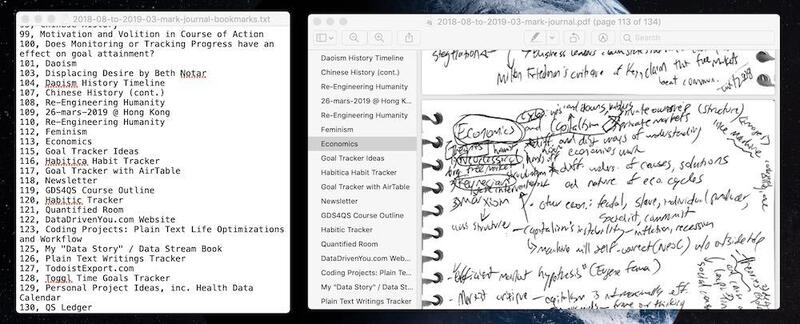 2018-08-to-2019-03-mark-journal-bookmarks.txt
99, Motivation and Volition in Course of Action
100, Does Monitoring or Tracking Progress have an
effect on goal attainment?
101, Daoism
103, Displacing Desire by Beth Notar
104, Daoism History Timeline
107, Chinese History (cont.)
108, Re-Engineering Humanity
109, 26-mars-2019 @ Hong Kong
110, Re-Engineering Humanity
112, Feminism
113, Economics
115, Goal Tracker Ideas
116, Habitica Habit Tracker
117, Goal Tracker with AirTable
118, Newsletter
119, GDS4QS Course Outline
120, Habitic Tracker
121, Quantified Room
122, DataDrivenYou.com Website
123, Coding Projects: Plain Text Life Optimizations
and Workflow
125, My "Data Story" / Data Stream Book
126, Plain Text Writings Tracker
127, TodoistExport.com
128, Toggl Time Goals Tracker
129, Personal Project Ideas, inc. Health Data
Calendar
130, QS Ledger
2018-08-to-2019-03-mark-journal.pdf (page 113 of 134)
Daoism History Timeline
Chinese History (cont.)
Re-Engineering Humanity
26-mars-2019 @ Hong K...
Re-Engineering Humanity
Feminism
Economics
Goal Tracker Ideas
Habitica Habit Tracker
Goal Tracker with AirTable
Newsletter
GDS4QS Course Outline
Habitic Tracker
Quantified Room
DataDrivenYou.com Web...
Coding Projects: Plain Te...
My "Data Story" / Data St...
Plain Text Writings Tracker
stagflation
Milton Friedman's critique of Keynes claim that free markets
beat commun.
Economics and capitalism
private ownership (structure)
private markets
diff and disag ways of understanding
how economies work
neoclassical
free market
Keynesian
diff unders. of causes, solutions
and nature of eco cycles
marxism
other econ: feudal, slave, individual produces,
socialist, communist
class structure
capitalism's instability - inflation, recession
markets will self-correct (neoC) w/o outside help
"Efficient market hypothesis" (Eugene Fama)
Market critique - capitalism is not necessarily eff.